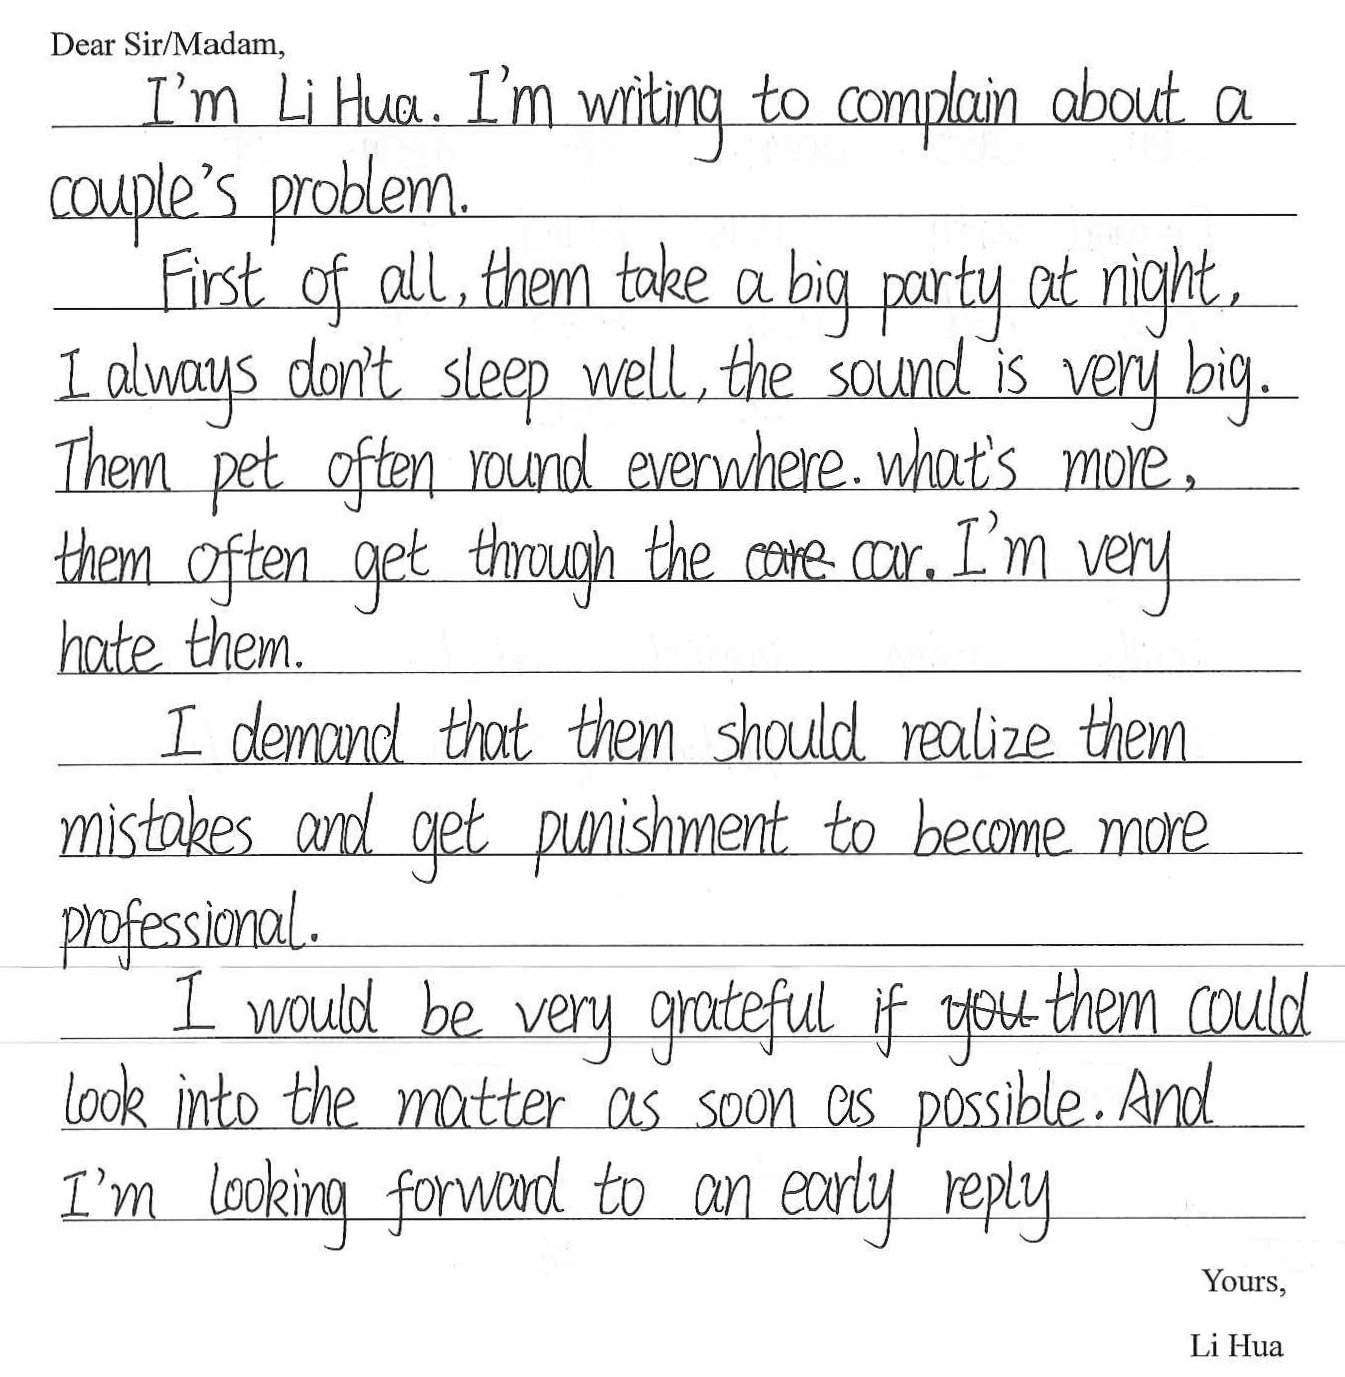 Dear Sir/Madam,
I'm Li Hua. I'm writing to complain about a
couple's problem.
First of all, them take a big party at night,
I always don't sleep well, the sound is very big.
Them pet often round everwhere. what's more,
them often get through the care car. I'm very
hate them.
I demand that them should realize them
mistakes and get punishment to become more
professional.
I would be very grateful if you them could
look into the matter as soon as possible. And
I'm looking forward to an early reply
Yours,
Li Hua